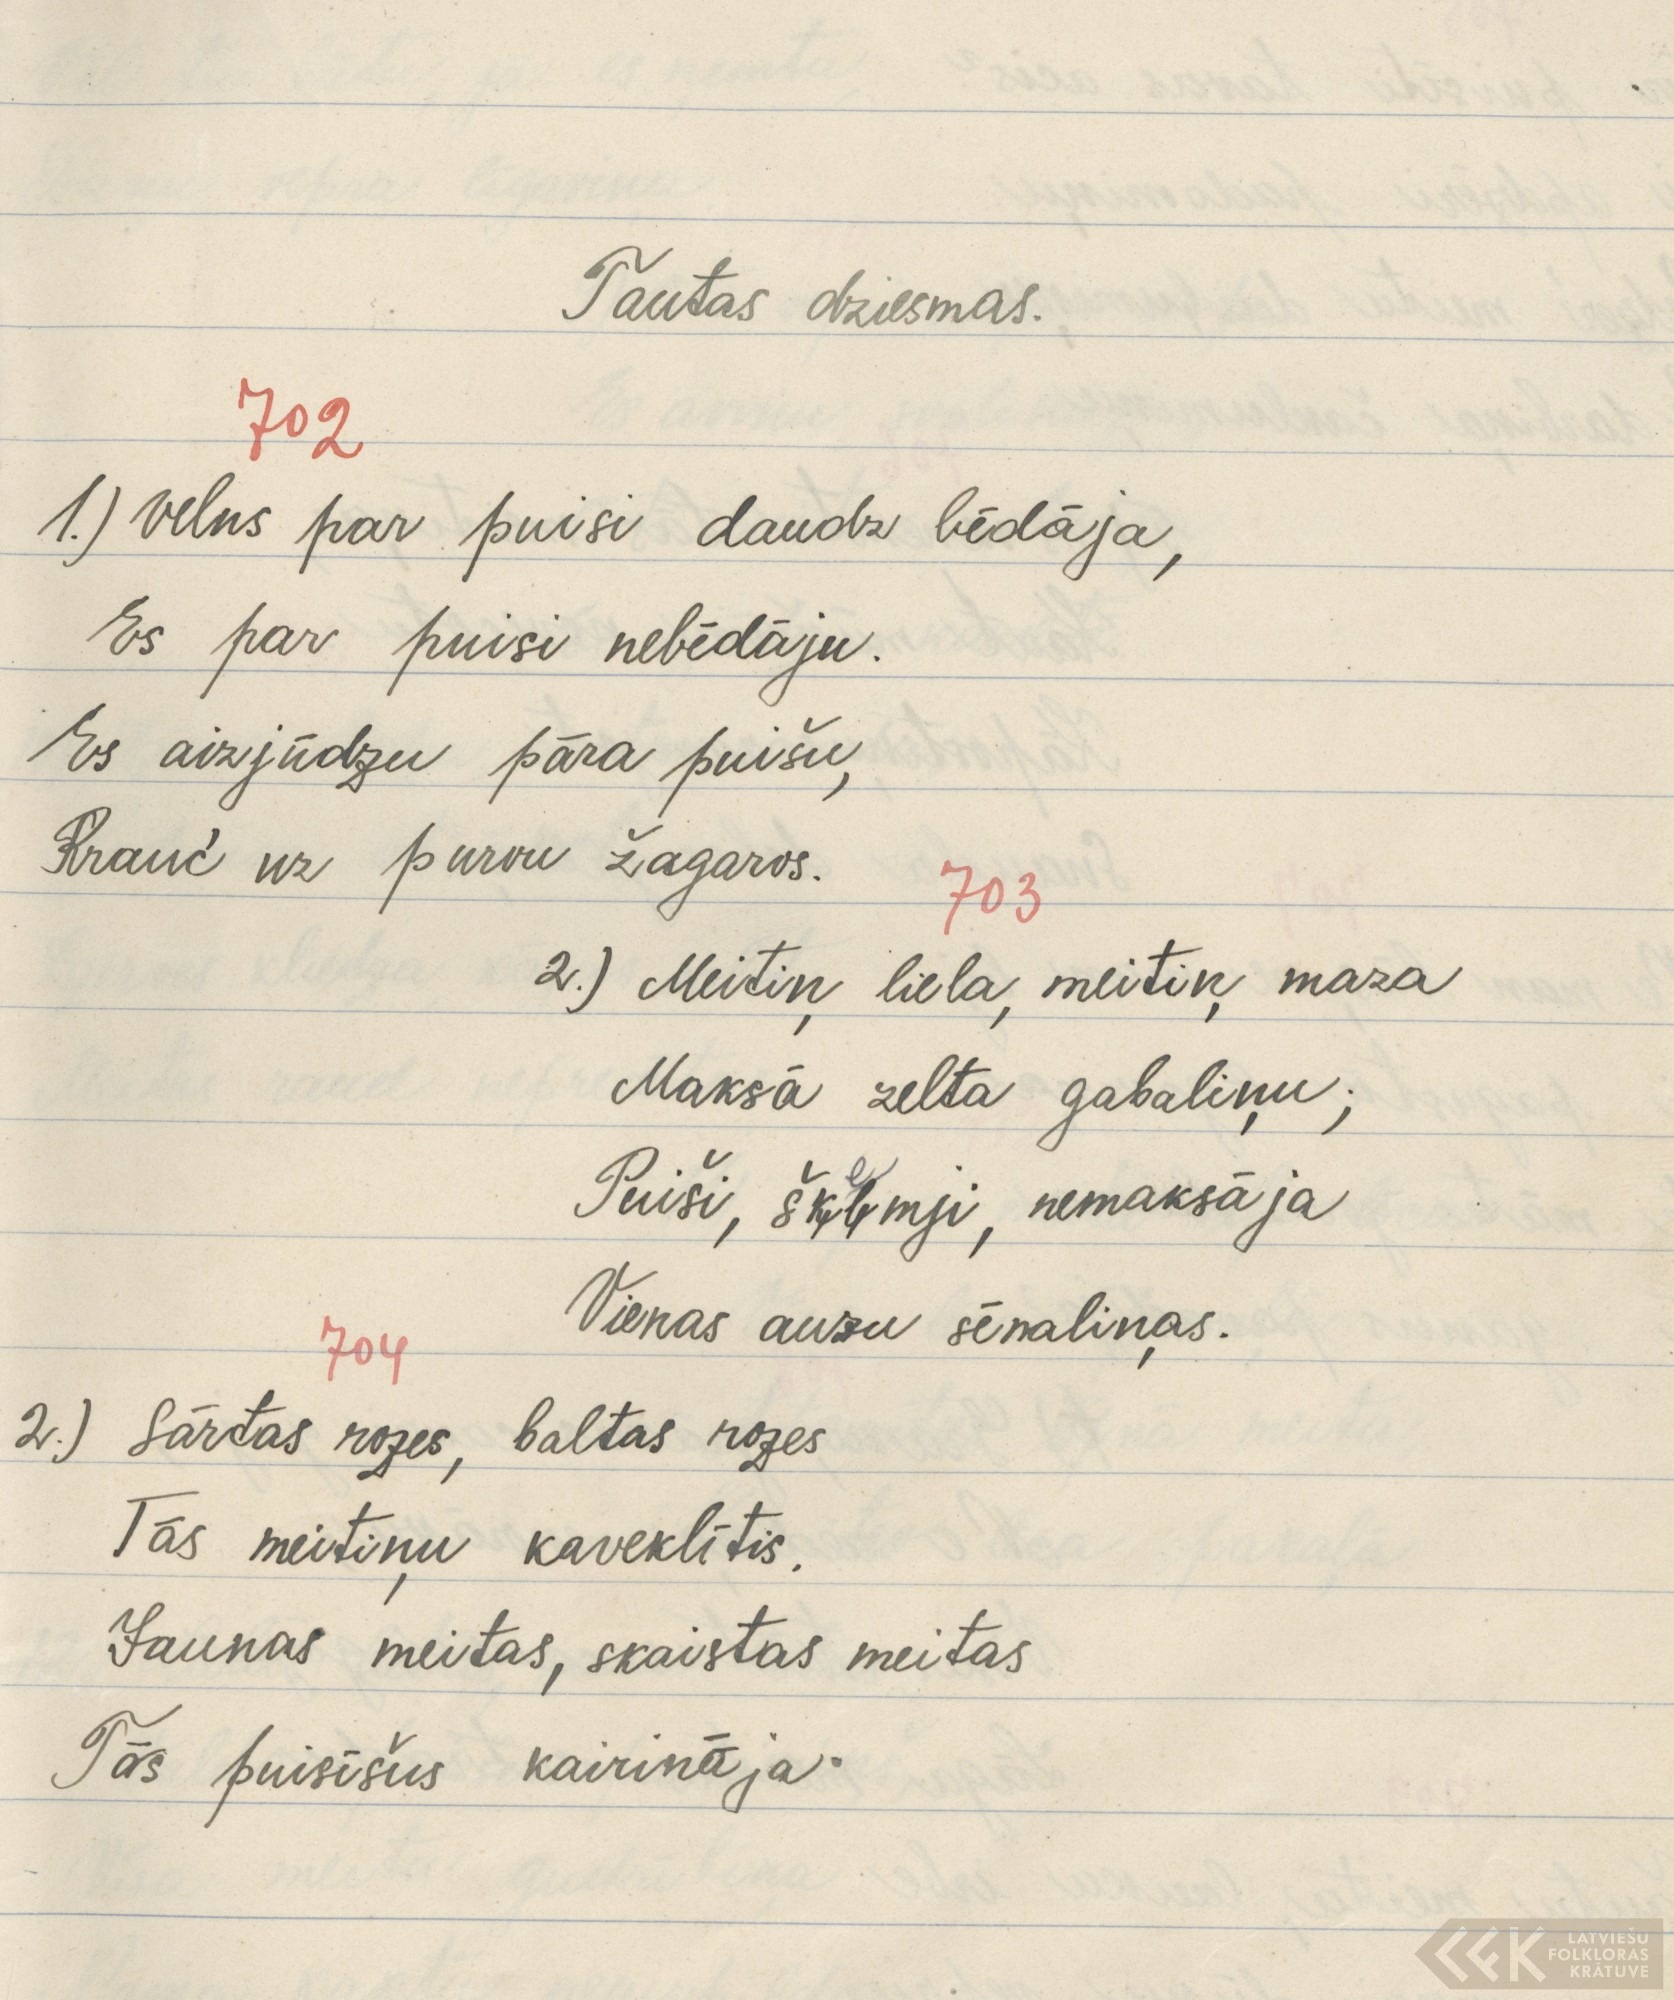 Tautas dziesmas.
702
1.) Velns par puisi daudz bēdāja,
Es par puisi nebēdāju.
Es aizjūdzu pāra puišu,
Brauc uz purvu žagaros.
703
2.) Meitiņ liela, meitiņ maza
Maksā zelta gabaliņu;
Puiši, šķelmji, nemaksāja
Vienas auzu sēnaliņas.
704
2.) Sārtas rozes, baltas rozes
Tās meitiņu kaveklītis.
Jaunas meitas, skaistas meitas
Tās puisīšus kairināja.
LATVIEŠU
FOLKLORAS
KRĀTUVE